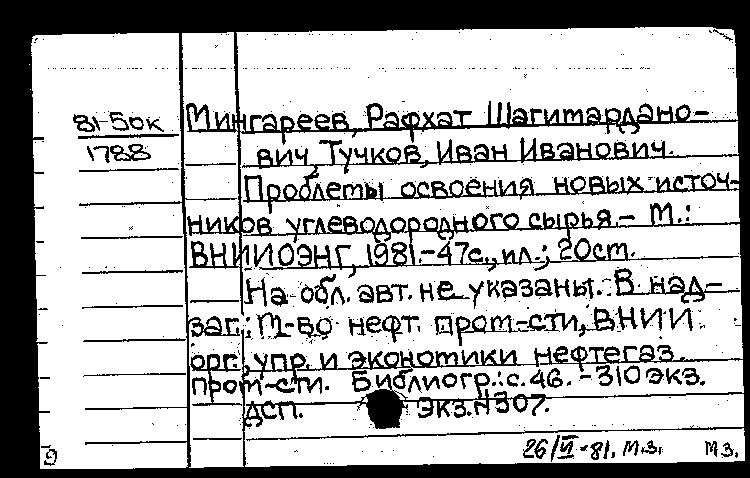 81-50к
1788
Мингареев, Рафхат Шагитардано-
вич, Тучков, Иван Иванович.
Проблемы освоения новых источ-
ников углеводородного сырья. – М.:
ВНИИОЭНГ, 1981.-47с., ил.; 20см.
На обл. авт. не указаны. В над-
заг.: М-во нефт. пром-сти, ВНИИ
орг., упр. и экономики нефтегаз.
пром-сти. Библиогр.: с.46. – 310 экз.
ДСП. Экз.N307.
9 26/VI-81. м.з. м з.